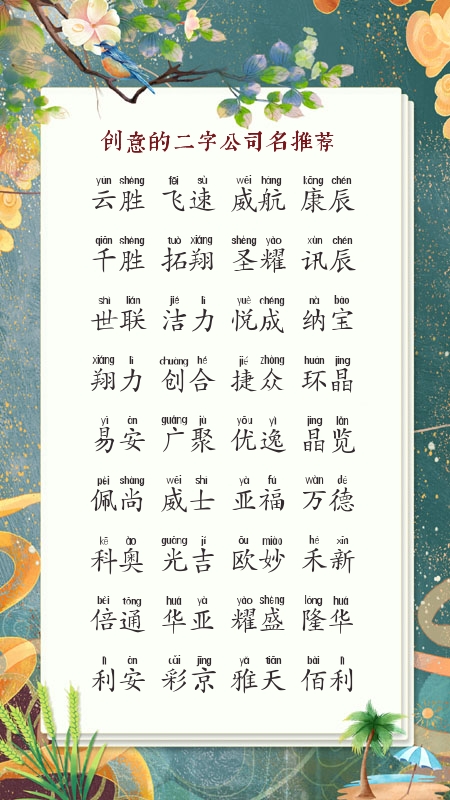 创意的二字公司名推荐
yún shèng fēi sù wēi háng kāng chén
云胜 飞速 威航 康辰
qiān shèng tuò xiáng shèng yào xùn chén
千胜 拓翔 圣耀 讯辰
shì lián jié lì yuè chéng nà bǎo
世联 洁力 悦成 纳宝
xiáng lì chuàng hé jié zhòng huán jīng
翔力 创合 捷众 环晶
yì ān guǎng jù yōu yì jīng lǎn
易安 广聚 优逸 晶览
pèi shàng wēi shì yà fú wàn dé
佩尚 威士 亚福 万德
kē ào guāng jí ōu miào hé xīn
科奥 光吉 欧妙 禾新
bèi tōng huá yà yào shèng lóng huá
倍通 华亚 耀盛 隆华
lì ān cǎi jīng yǎ tiān bǎi lì
利安 彩京 雅天 佰利